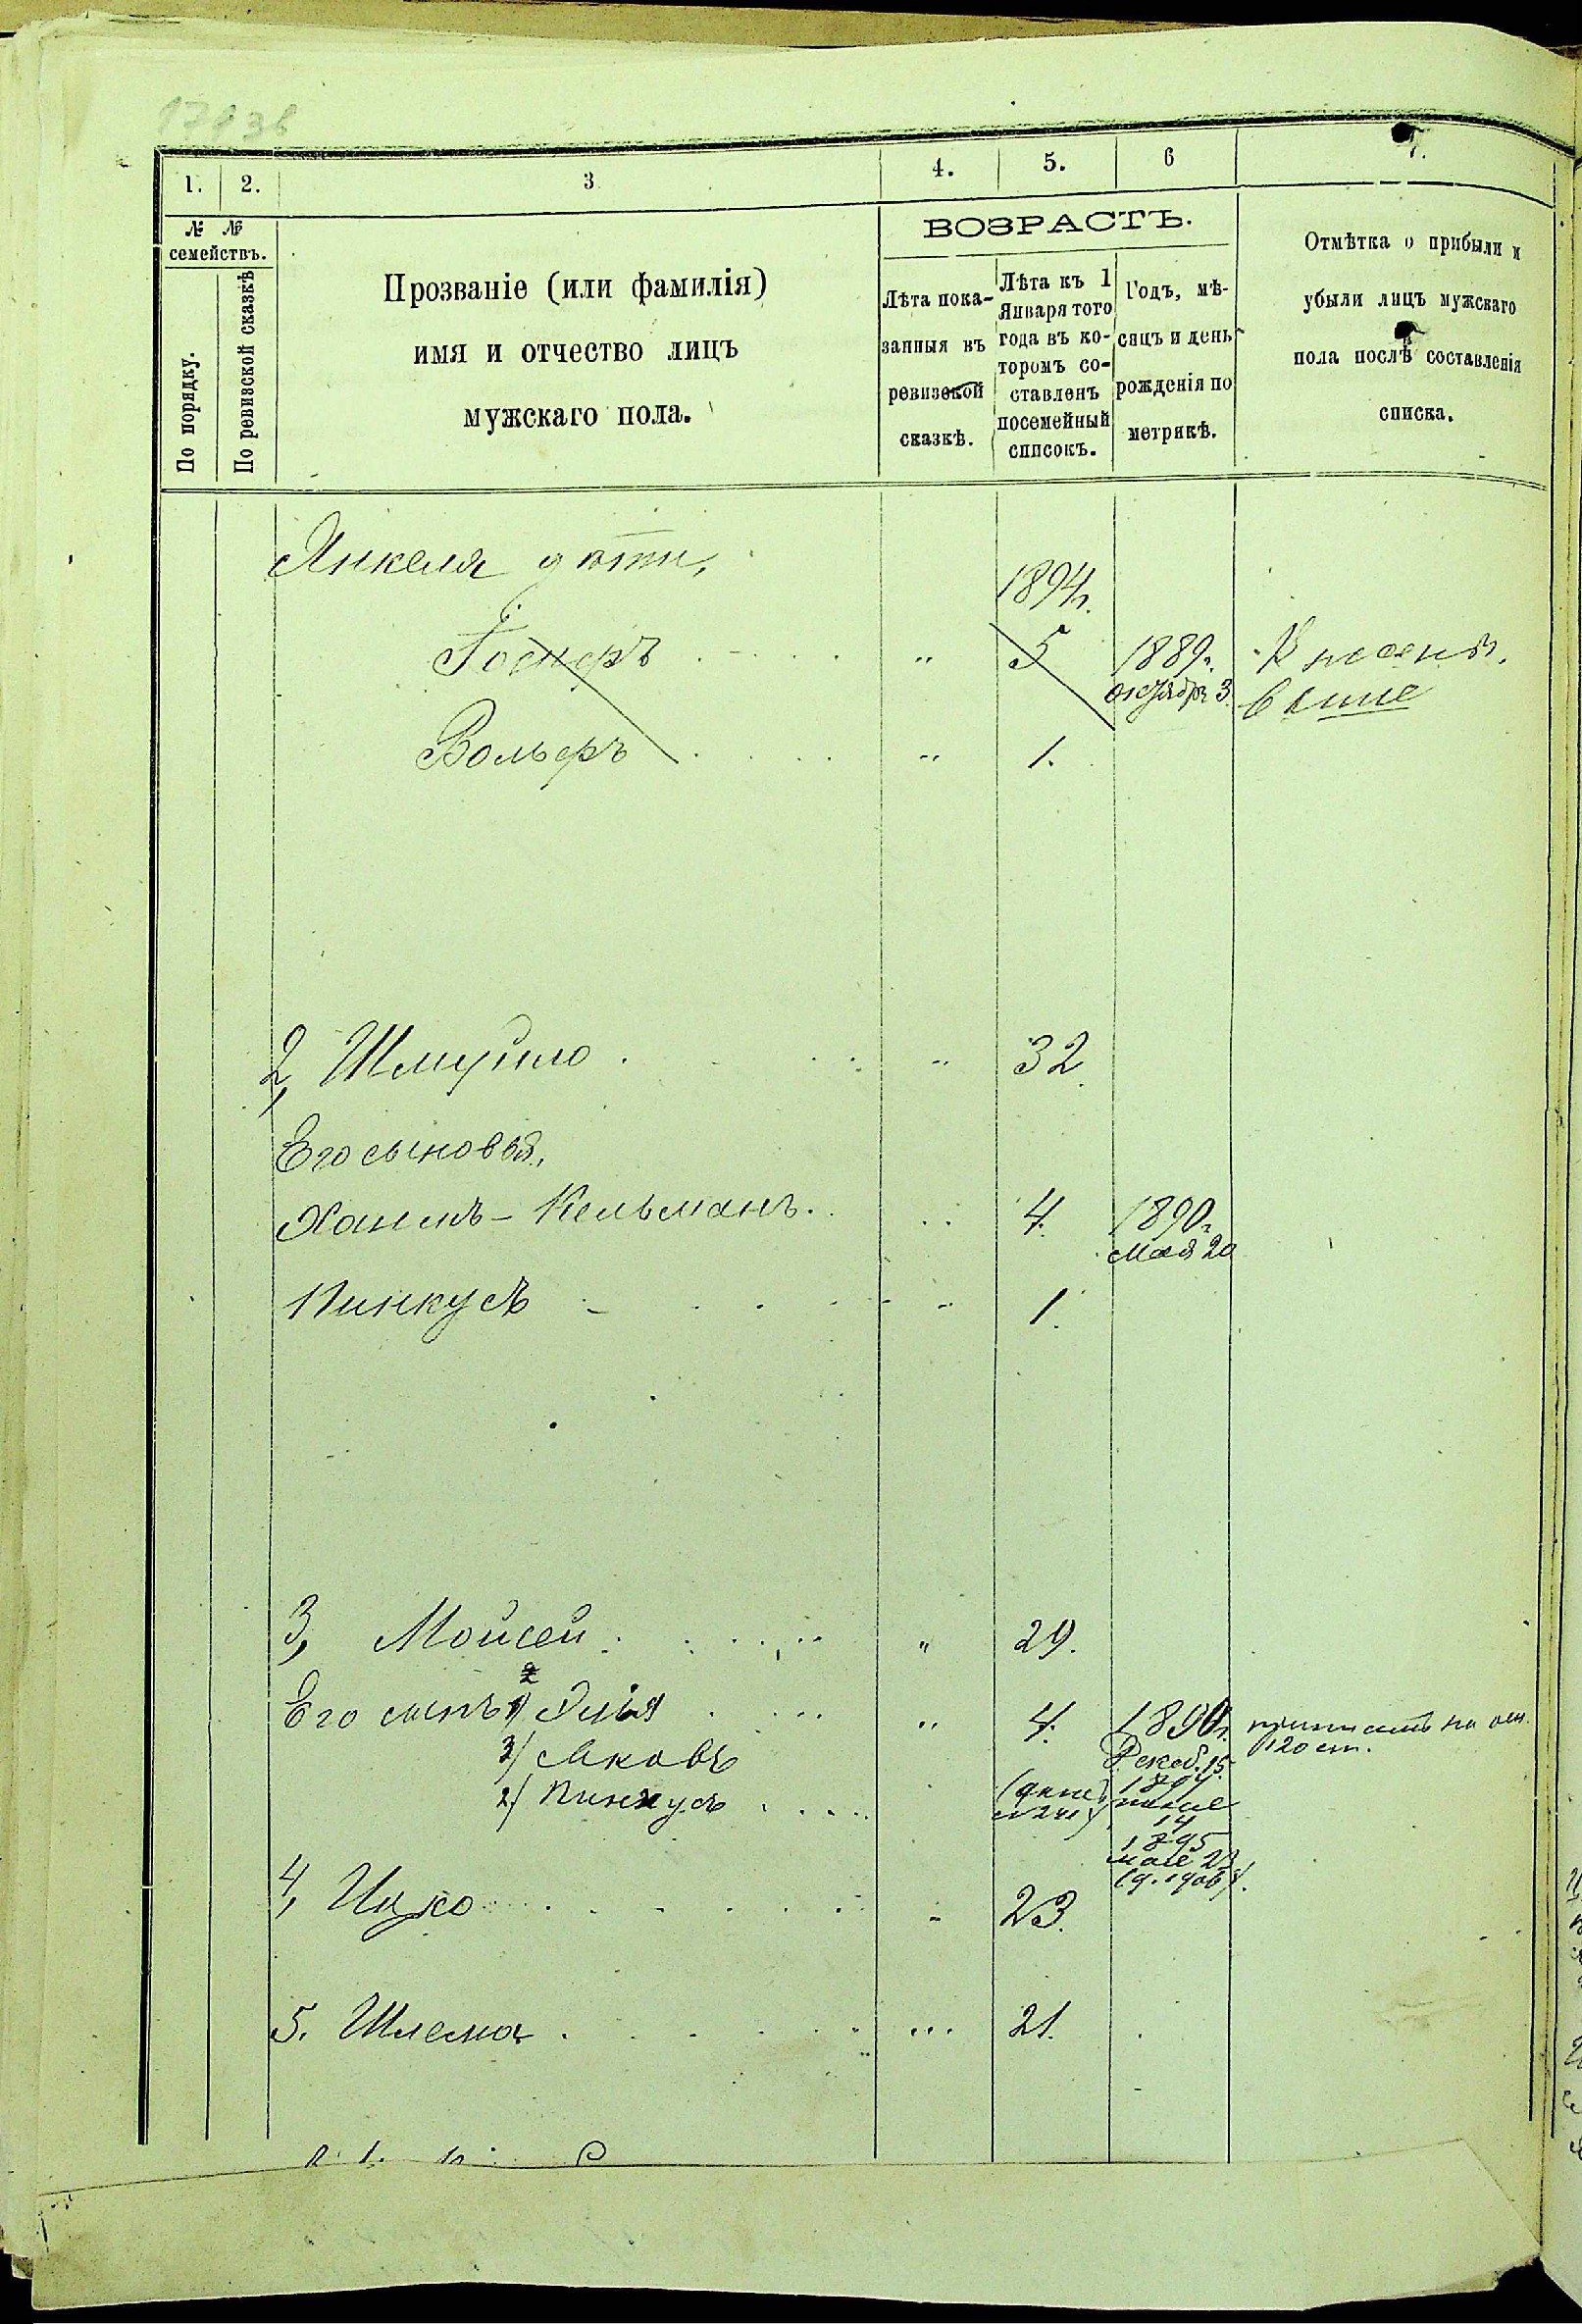 1. 2. 3 4. 5. 6 7.
№ № семействъ.
По порядку.
По ревизской сказкѣ
Прозваніе (или фамилія)
имя и отчество лицъ
мужскаго пола.
ВОЗРАСТЪ.
Лѣта пока-
занныя въ
ревизской
сказкѣ.
Лѣта къ 1
Января того
года въ ко-
торомъ со-
ставленъ
посемейный
списокъ.
Годъ, мѣ-
сяцъ и день
рожденія по
метрикѣ.
Отмѣтка о прибыли и
убыли лицъ мужскаго
пола послѣ составленія
списка.
Янкеля дѣти,
1894г.
" 5 1889г.
октября 3. выше
Вольфъ " 1.
2, Шмуйло " 32
Его сыновья,
Хаимъ-Кельманъ 4. 1890г.
Мая 20
Пинкусъ " 1.
3, Мойсей " 29.
Его сынъ Элья " 4. 1890г.
3/ Яковъ Декаб. 15. 120 ст.
2/ Пинкусъ
14
1895
мая 23
4, Ицко " 23.
5. Шлема 21.